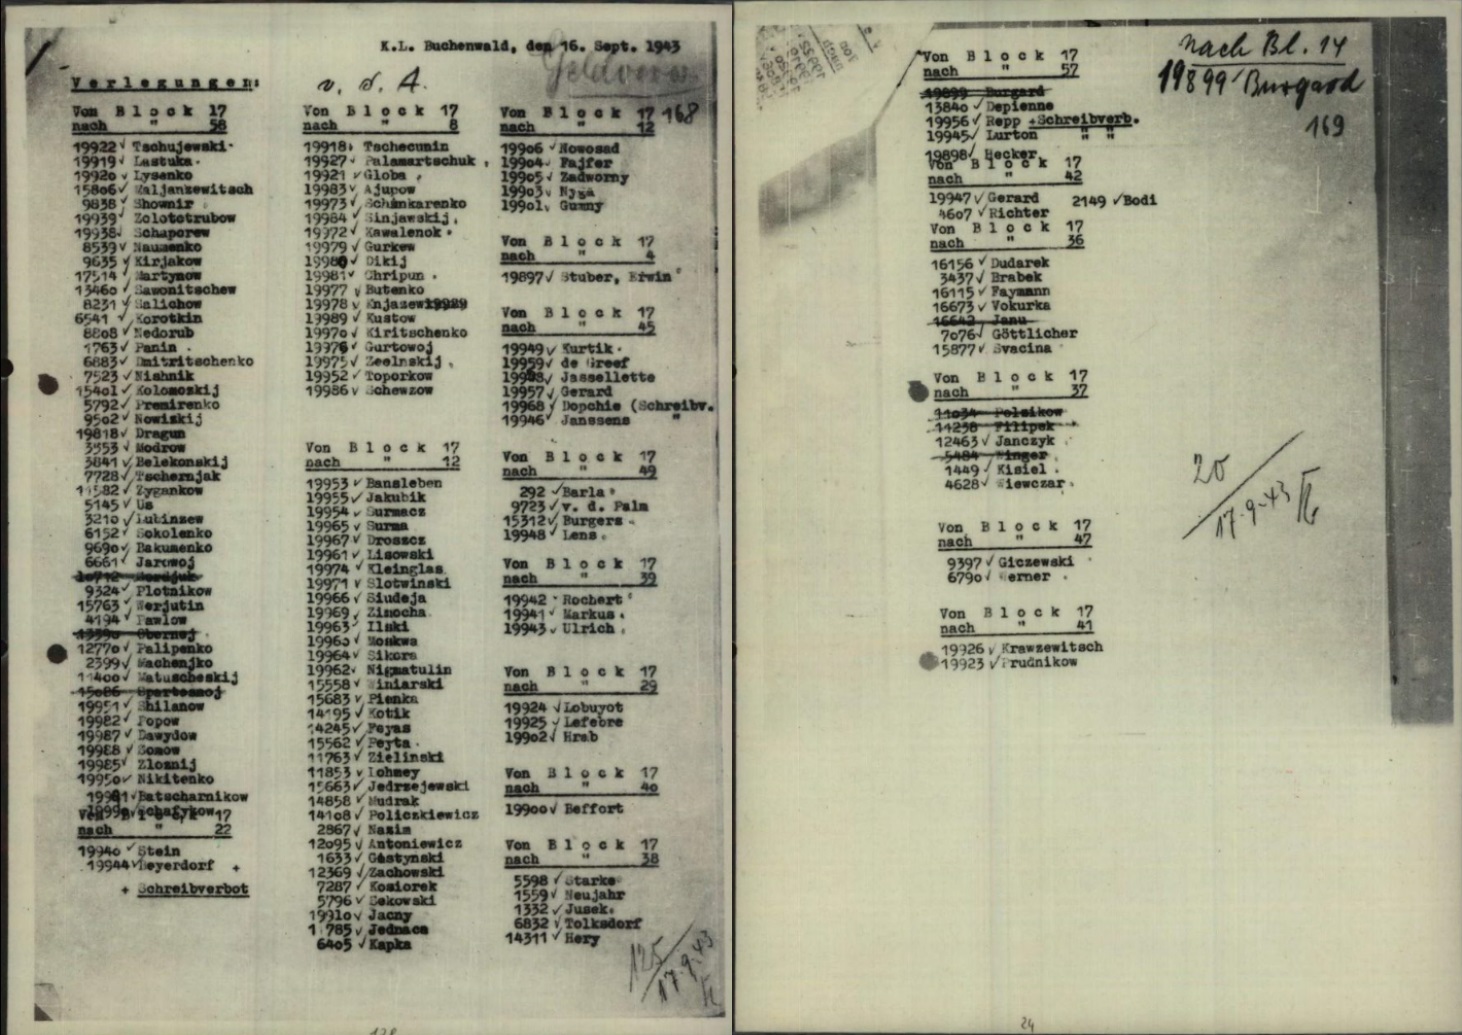 K.L. Buchenwald, den 16. Sept. 1943
Verlegungen:
v. d. A.
Von Block 17
nach " 58
19922 Tschujewski
19919 Lastuka
19920 Lysenko
15806 Maljanzewitsch
9838 Shownir
19939 Zolototrubow
19938 Schaporew
8539 Naumenko
9635 Kirjakow
17514 Martynow
13460 Sawonitschew
8231 Galichow
6541 Korotkin
8808 Nedorub
1763 Panin
6883 Dmitritschenko
7523 Nishnik
15401 Kolomoskij
5792 Premirenko
9502 Nowiskij
19818 Dragun
3553 Modrow
3841 Belekonskij
7728 Tschernjak
11582 Zygankow
5145 Us
3210 Lubinzew
6152 Sokolenko
9690 Bakumenko
6661 Jarowoj
9324 Plotnikow
15763 Werjutin
4194 Pawlow
12770 Palipenko
2399 Machenjko
11400 Matuscheskij
19951 Shilanow
19982 Popow
19987 Dawydow
19988 Somow
19985 Zlomnij
19950 Nikitenko
Batscharnikow
Von Block 17
nach " 22
19940 Stein
19944 Meyerdorf +
+ Schreibverbot
Von Block 17
nach " 8
19918 Tschecunin
19927 Palamartschuk
19921 Globa
19983 Ajupow
19973 Schinkarenko
19984 Sinjawskij
19972 Kawalenok
19979 Gurkew
19980 Dikij
19981 Chripun
19977 Butenko
19978 Knjasew
19989 Kustow
19970 Kiritschenko
19976 Gurtowoj
19975 Zeelnskij
19952 Toporkow
19986 Schewzow
Von Block 17
nach " 12
19953 Bansleben
19955 Jakubik
19954 Surmacz
19965 Surma
19967 Droszcz
19961 Lisowski
19974 Kleinglas
19971 Slotwinski
19966 Siudeja
19969 Zimocha
19963 Ilski
19960 Moskwa
19964 Sikora
19962 Nigmatulin
15558 Winiarski
15683 Pienka
14195 Kotik
14245 Peyas
15562 Peyta
11763 Zielinski
11853 Lohmey
15663 Jedrzejewski
14858 Mudrak
14108 Policzkiewicz
2867 Nazim
12095 Antoniewicz
1633 Gastynski
12369 Zachowski
7287 Kosiorek
5796 Sekowski
19910 Jacny
1 785 Jednaca
6405 Kapka
Von Block 17 168
nach " 12
19906 Nowosad
19904 Fajfer
19905 Zadworny
19903 Nyga
19901 Gumny
Von Block 17
nach " 4
19897 Stuber, Erwin
Von Block 17
nach " 45
19949 Kurtik
19959 de Greef
Jassellette
19957 Gerard
19968 Dopchie (Schreibv.
19946 Janssens "
Von Block 17
nach " 49
292 Barla
9723 v. d. Palm
15312 Burgers
19948 Lens
Von Block 17
nach " 39
19942 Rochert
19941 Markus
19943 Ulrich
Von Block 17
nach " 29
19924 Lobuyot
19925 Lefebre
19902 Hrab
Von Block 17
nach " 40
19900 Beffort
Von Block 17
nach " 38
5598 Starke
1559 Neujahr
1332 Jusek
6832 Tolksdorf
14311 Hery
125
17.9.43
Von Block 17
nach " 57
19899 Burgard
13840 Depienne
19956 Repp +Schreibverb.
19945 Lurton " "
19898 Hecker
Von Block 17
nach " 42
19947 Gerard 2149 Bodi
4607 Richter
Von Block 17
nach " 36
16156 Dudarek
3437 Brabek
16115 Faymann
16673 Vokurka
16642 Janu
7076 Göttlicher
15877 Svacina
Von Block 17
nach " 37
11034 Polsikow
11238 Filipek
12463 Janczyk
5484 Winger
1449 Kisiel
4628 Wiewczar
Von Block 17
nach " 47
9397 Giczewski
6790 Werner
Von Block 17
nach " 41
19926 Krawzewitsch
19923 Prudnikow
nach Bl. 14
19899 Burgard
169
20
17.9.43
24